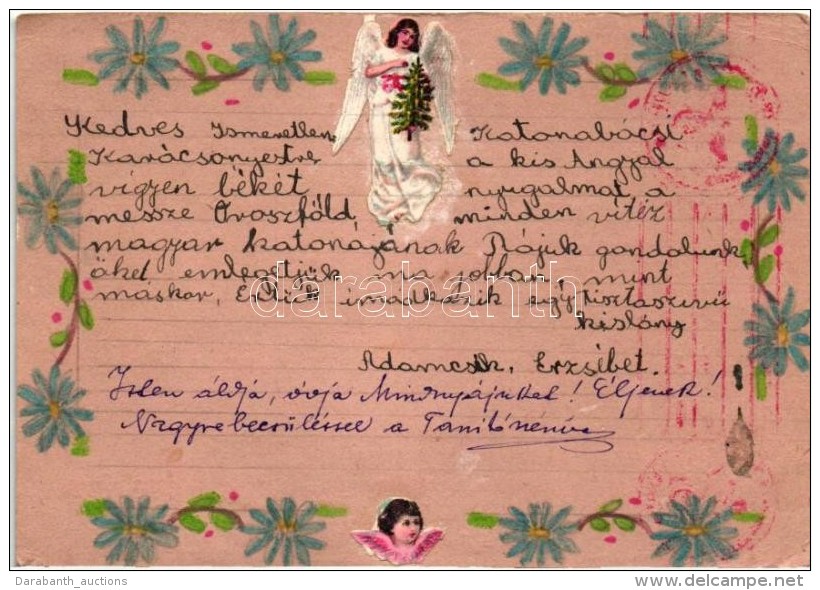 Kedves Ismeretlen Katonabácsi
Karácsonyestre a kis Angyal
vigyen békét nyugalmat a
messze Oroszföld, minden vitéz
magyar katonájának Rájuk gondolunk,
őket emlegetjük ma jobban, mint
máskor, Értük imádkozik egy tisztaszivü
kislány
Adamcsik, Erzsébet.
Isten áldja, óvja Mindnyájukat! Éljenek!
Nagyrabecsüléssel a Tanítónénije
darabanth
Darabanth_auctions
delcampe.net